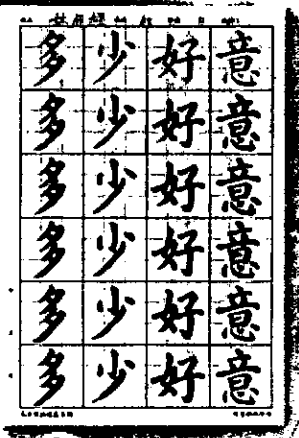 多少好意
多少好意
多少好意
多少好意
多少好意
多少好意